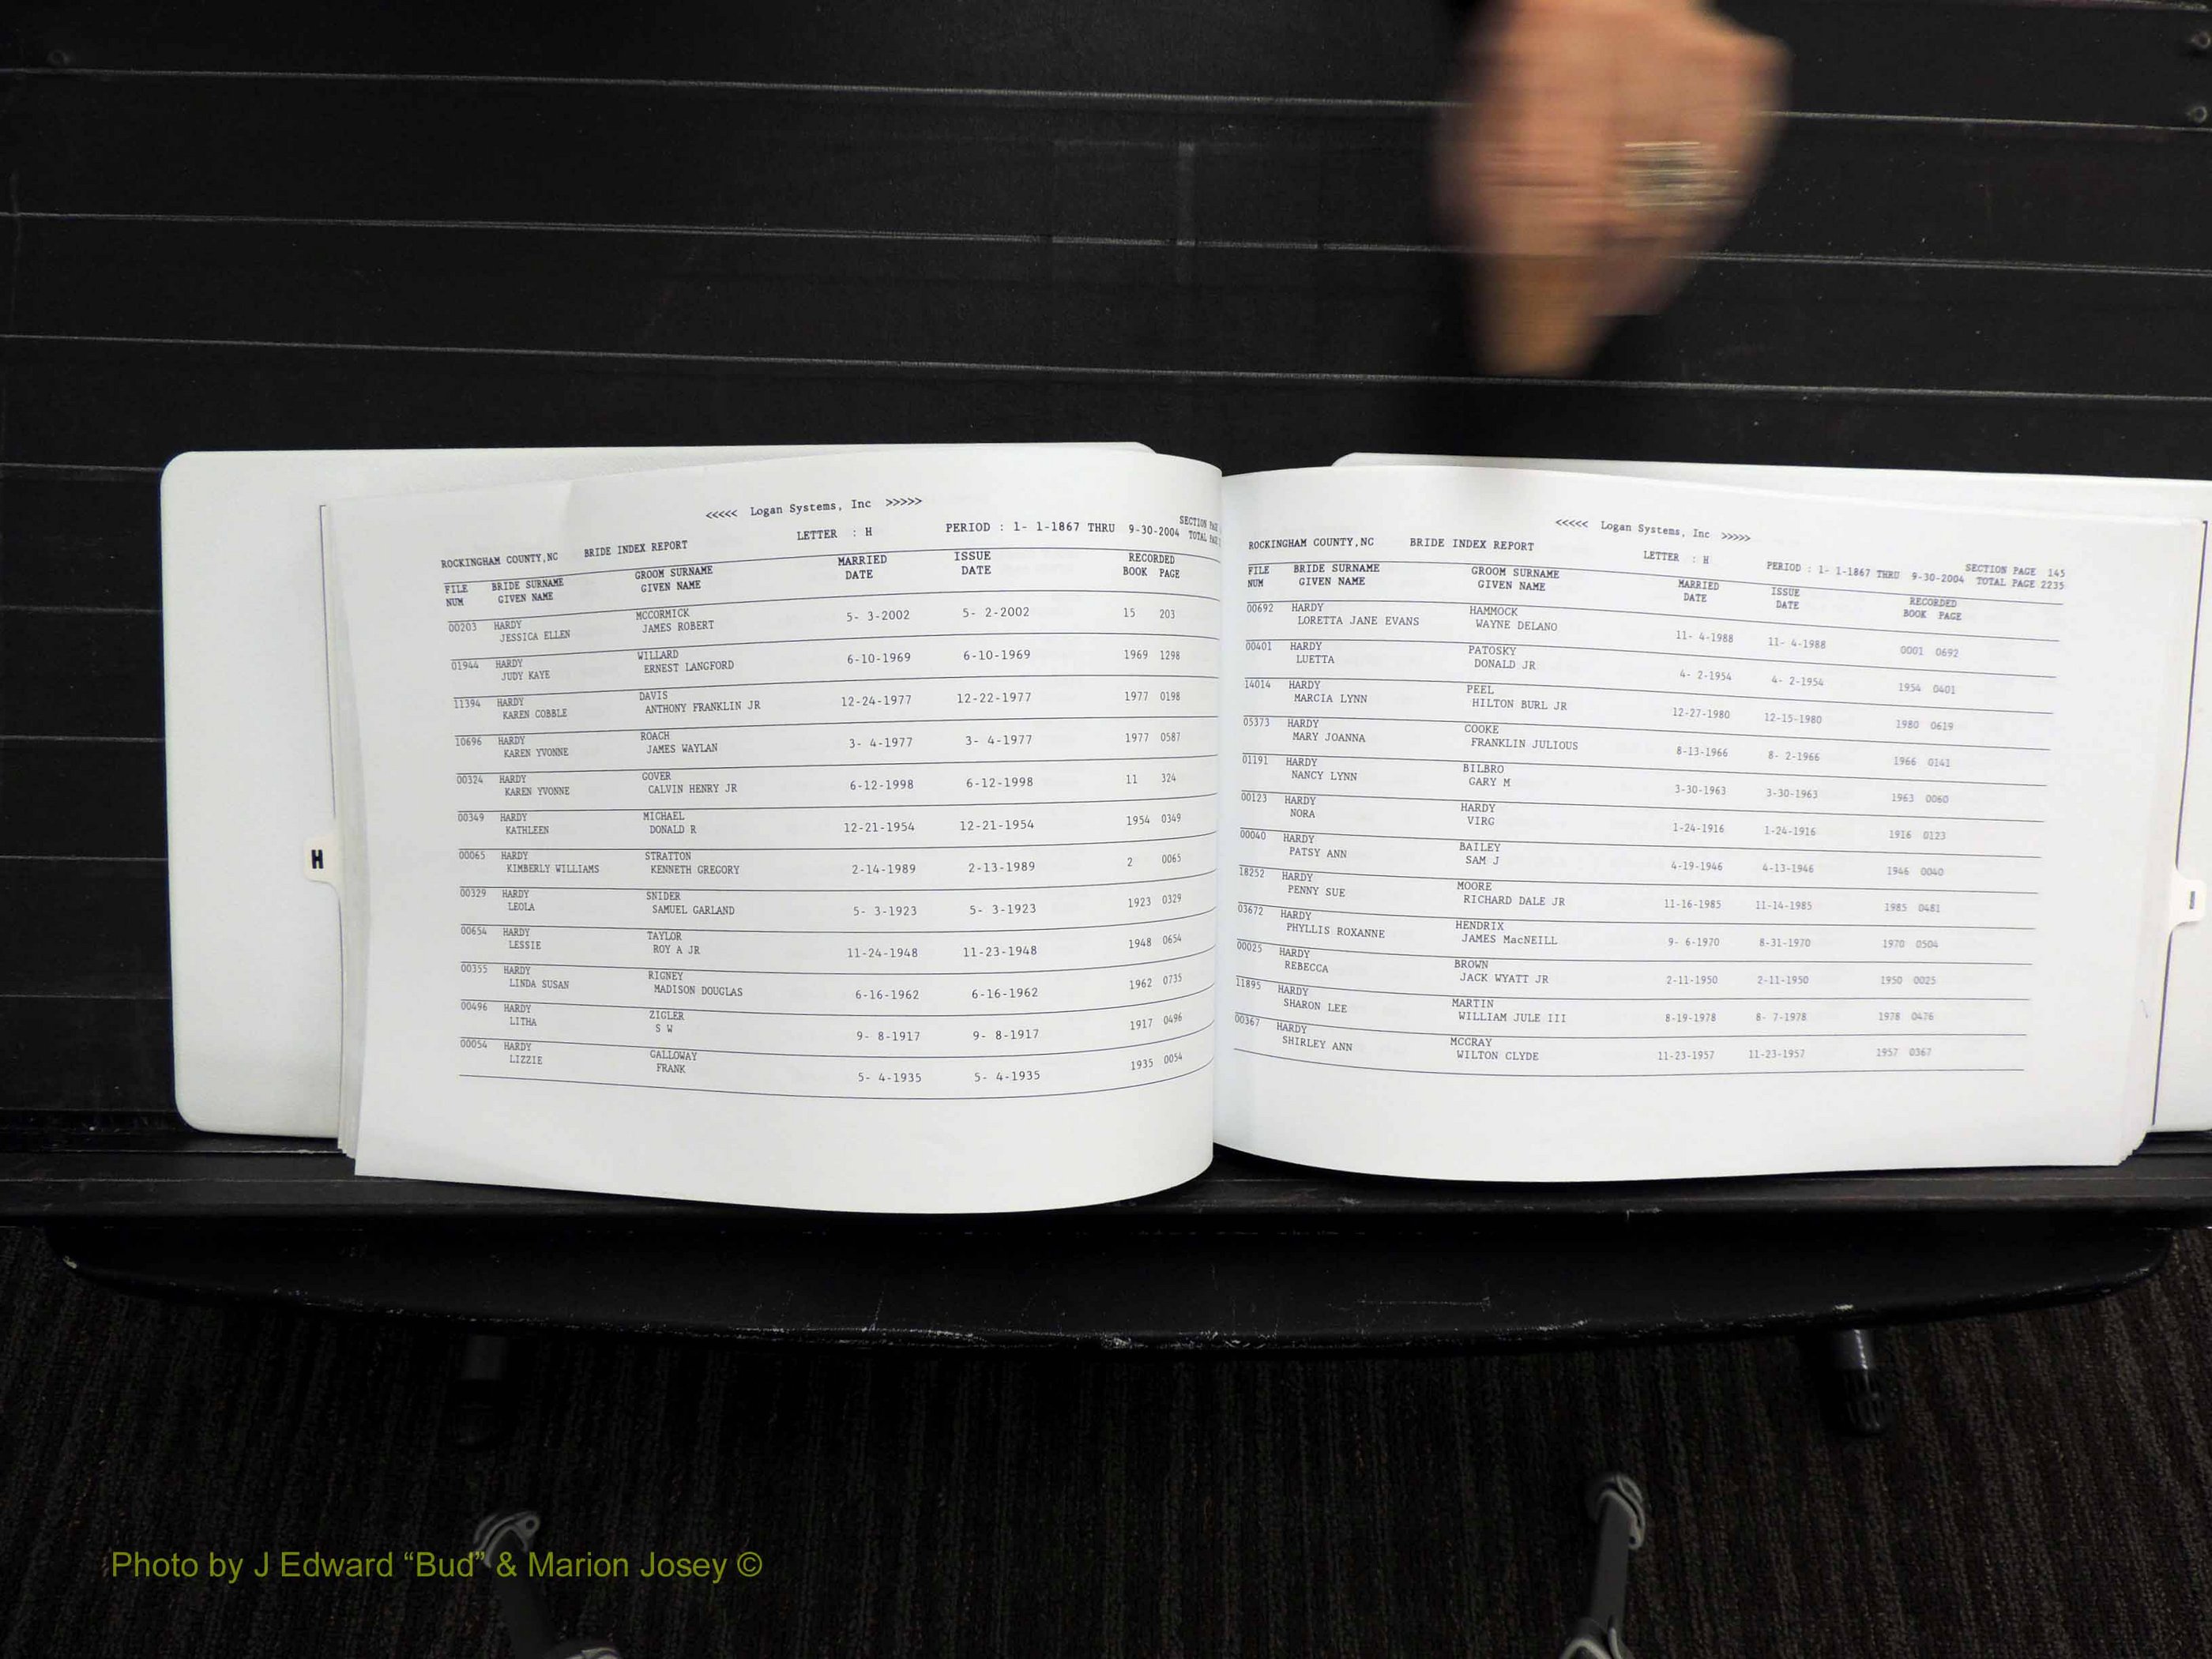 <<<<< Logan Systems, Inc >>>>>
SECTION
ROCKINGHAM COUNTY,NC BRIDE INDEX REPORT LETTER : H PERIOD : 1- 1-1867 THRU 9-30-2004 TOTAL
FILE BRIDE SURNAME GROOM SURNAME MARRIED ISSUE RECORDED
NUM GIVEN NAME GIVEN NAME DATE DATE BOOK PAGE
00203 HARDY MCCORMICK 5- 3-2002 5- 2-2002 15 203
JESSICA ELLEN JAMES ROBERT
01944 HARDY WILLARD 6-10-1969 6-10-1969 1969 1298
JUDY KAYE ERNEST LANGFORD
11394 HARDY DAVIS 12-24-1977 12-22-1977 1977 0198
KAREN COBBLE ANTHONY FRANKLIN JR
10696 HARDY ROACH 3- 4-1977 3- 4-1977 1977 0587
KAREN YVONNE JAMES WAYLAN
00324 HARDY GOVER 6-12-1998 6-12-1998 11 324
KAREN YVONNE CALVIN HENRY JR
00349 HARDY MICHAEL 12-21-1954 12-21-1954 1954 0349
KATHLEEN DONALD R
00065 HARDY STRATTON 2-14-1989 2-13-1989 2 0065
KIMBERLY WILLIAMS KENNETH GREGORY
00329 HARDY SNIDER 5- 3-1923 5- 3-1923 1923 0329
LEOLA SAMUEL GARLAND
00654 HARDY TAYLOR 11-24-1948 11-23-1948 1948 0654
LESSIE ROY A JR
00355 HARDY RIGNEY 6-16-1962 6-16-1962 1962 0735
LINDA SUSAN MADISON DOUGLAS
00496 HARDY ZIGLER 9- 8-1917 9- 8-1917 1917 0496
LITHA S W
00054 HARDY GALLOWAY 5- 4-1935 5- 4-1935 1935 0054
LIZZIE FRANK
H
<<<<< Logan Systems, Inc >>>>>
SECTION PAGE 145
ROCKINGHAM COUNTY,NC BRIDE INDEX REPORT LETTER : H PERIOD : 1- 1-1867 THRU 9-30-2004 TOTAL PAGE 2235
FILE BRIDE SURNAME GROOM SURNAME MARRIED ISSUE RECORDED
NUM GIVEN NAME GIVEN NAME DATE DATE BOOK PAGE
00692 HARDY HAMMOCK 11- 4-1988 11- 4-1988 0001 0692
LORETTA JANE EVANS WAYNE DELANO
00401 HARDY PATOSKY 4- 2-1954 4- 2-1954 1954 0401
LUETTA DONALD JR
14014 HARDY PEEL 12-27-1980 12-15-1980 1980 0619
MARCIA LYNN HILTON BURL JR
05373 HARDY COOKE 8-13-1966 8- 2-1966 1966 0141
MARY JOANNA FRANKLIN JULIOUS
01191 HARDY BILBRO 3-30-1963 3-30-1963 1963 0060
NANCY LYNN GARY M
00123 HARDY HARDY 1-24-1916 1-24-1916 1916 0123
NORA VIRG
00040 HARDY BAILEY 4-19-1946 4-13-1946 1946 0040
PATSY ANN SAM J
18252 HARDY MOORE 11-16-1985 11-14-1985 1985 0481
PENNY SUE RICHARD DALE JR
03672 HARDY HENDRIX 9- 6-1970 8-31-1970 1970 0504
PHYLLIS ROXANNE JAMES MacNEILL
00025 HARDY BROWN 2-11-1950 2-11-1950 1950 0025
REBECCA JACK WYATT JR
11895 HARDY MARTIN 8-19-1978 8- 7-1978 1978 0476
SHARON LEE WILLIAM JULE III
00367 HARDY MCCRAY 11-23-1957 11-23-1957 1957 0367
SHIRLEY ANN WILTON CLYDE
I
Photo by J Edward “Bud” & Marion Josey ©